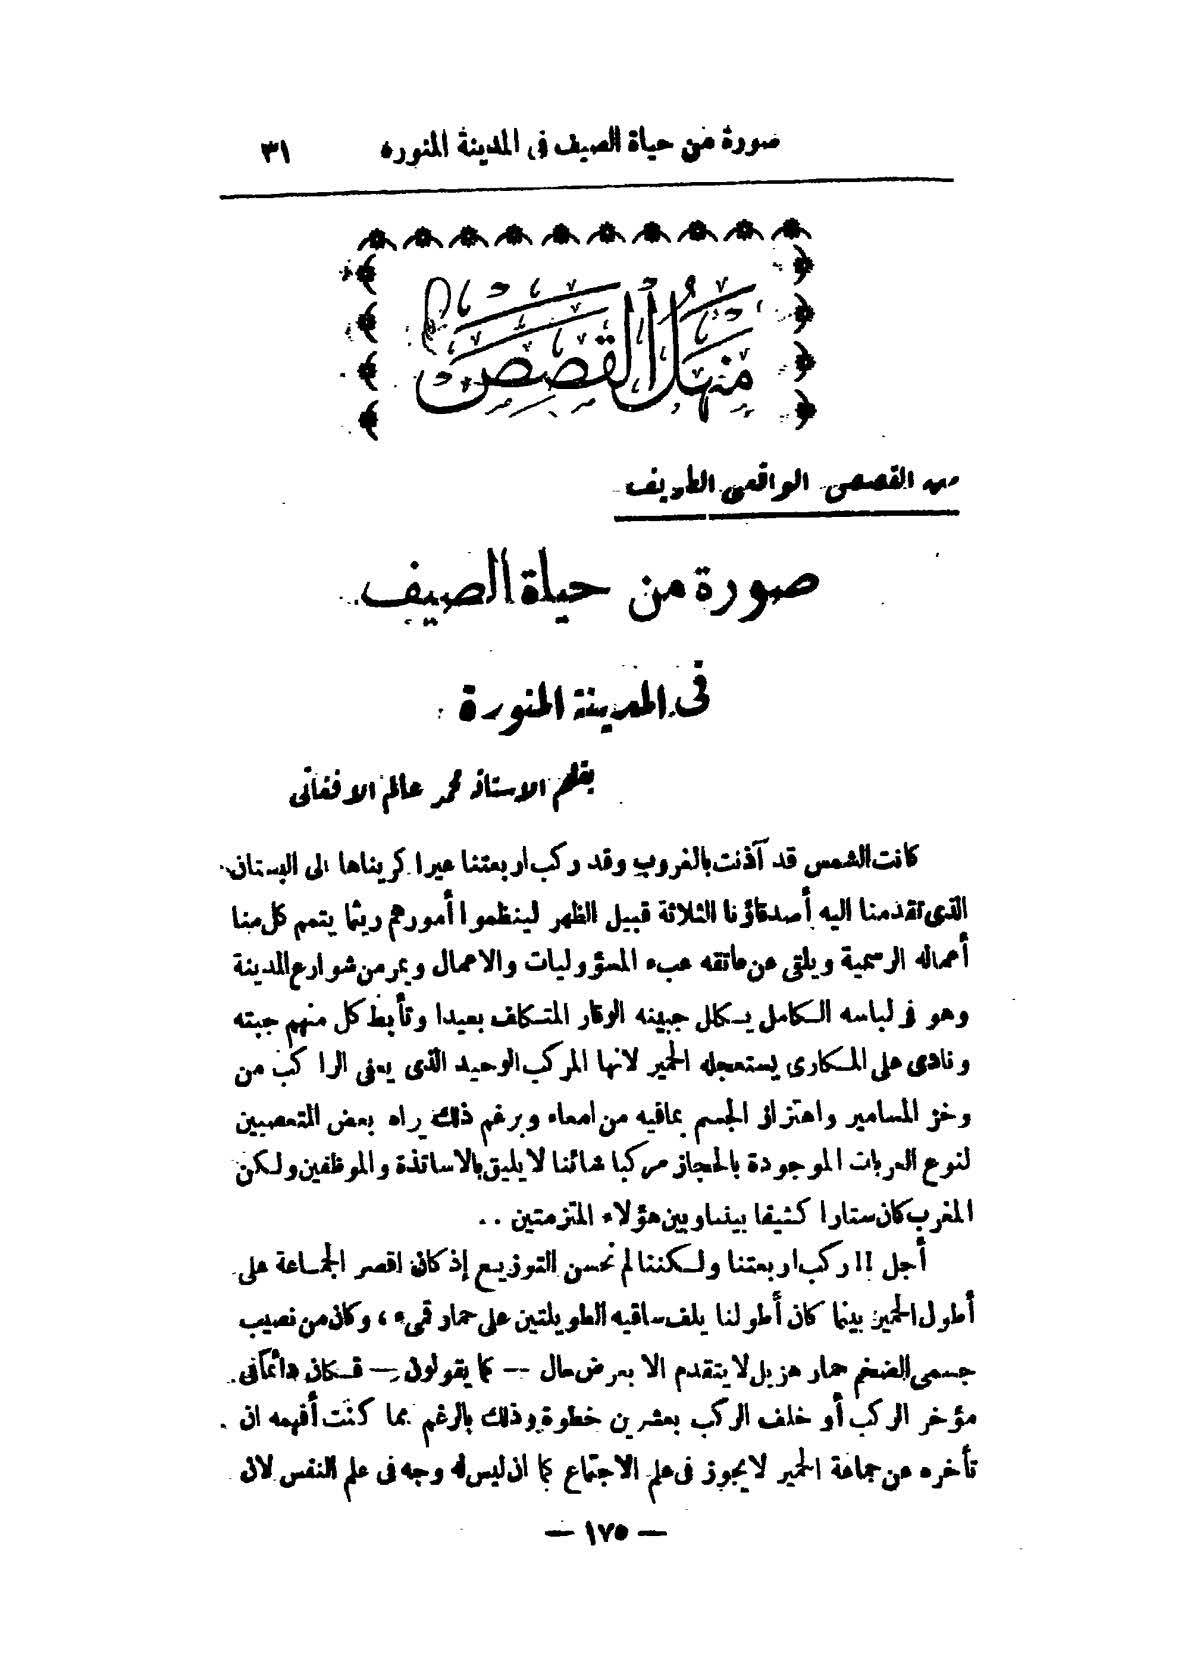 صورة من حياة الصيف في المدينة المنوره ٣١
منهل القصص
من القصص الواقعى الطريف
صورة من حياة الصيف
فى المدينة المنورة
بقلم الاستاذ محمد عالم الافغانى
كانت الشمس قد آذنت بالغروب وقد ركب اربعتنا عيرا كريناها الى البستان
الذى تقدمنا اليه أصدقاؤنا الثلاثة قبيل الظهر لينظموا أمورهم ريثما يتمم كل منا
أعماله الرسمية ويلقى عن عاتقه عبء المسؤوليات والاعمال ويمر من شوارع المدينة
وهو فى لباسه الكامل يكلل جبينه الوقار المتكاف بعيدا وتأبط كل منهم جبته
ونادى على المكارى يستعجله الحمير لانها المركب الوحيد الذى يعفى الراكب من
وخز المسامير واهتزاز الجسم بمافيه من امعاء وبرغم ذلك يراه بعض المتعصبين
لنوع العربات الموجودة بالحجاز مركبا شائنا لا يليق بالاساتذة والموظفين ولكن
المغرب كان ستارا كثيفا بيننا وبين هؤلاء المتزمتين ..
أجل !! ركب اربعتنا ولكننا لم نحسن التوزيع إذ كان اقصر الجماعة على
أطول الحمير بينما كان أطولنا يلف ساقيه الطويلتين على حمار قمىء ، وكان من نصيب
جسمى الضخم حمار هزيل لا يتقدم الا بعرض حال — كما يقولون — فكان دائما فى
مؤخر الركب أو خلف الركب بعشرين خطوة وذلك بالرغم مما كنت أفهمه ان
تأخره عن جماعة الحمير لا يجوز فى علم الاجتماع كما ان ليس له وجه فى علم النفس لان
— ١٧٥ —